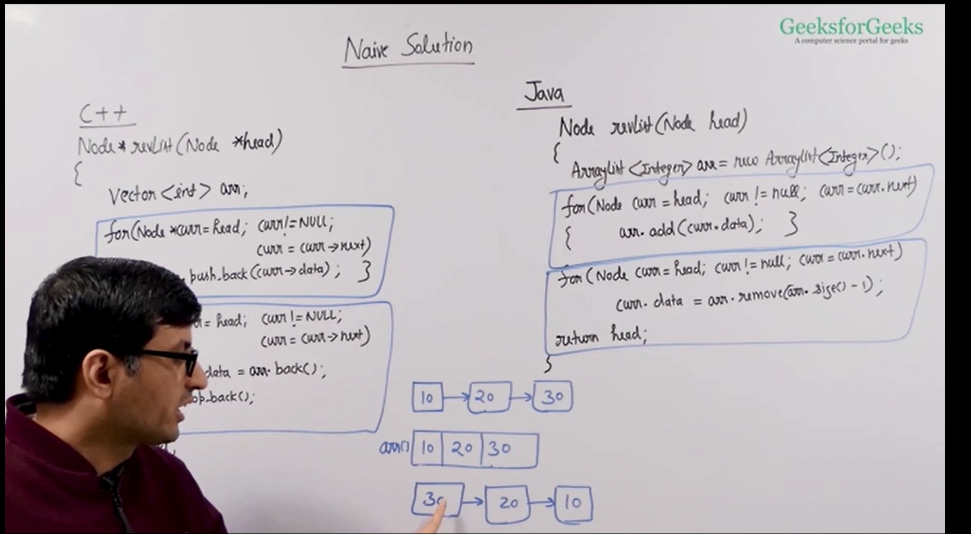 GeeksforGeeks
A computer science portal for geeks
Naive Solution
C++
Node* revList(Node *head)
{
vector <int> arr;
for(Node *curr = head; curr != NULL;
curr = curr → next)
push_back(curr → data); }
= head; curr != NULL;
curr = curr → next)
data = arr. back();
op_back();
Java
Node revList(Node head)
{
ArrayList <Integer> arr = new ArrayList <Integer>();
for(Node curr = head; curr != null; curr = curr.next)
{ arr. add(curr.data); }
for(Node curr = head; curr != null; curr = curr.next)
curr. data = arr. remove(arr. size() - 1);
return head;
}
10 → 20 → 30
arr[] 10 20 30
30 → 20 → 10